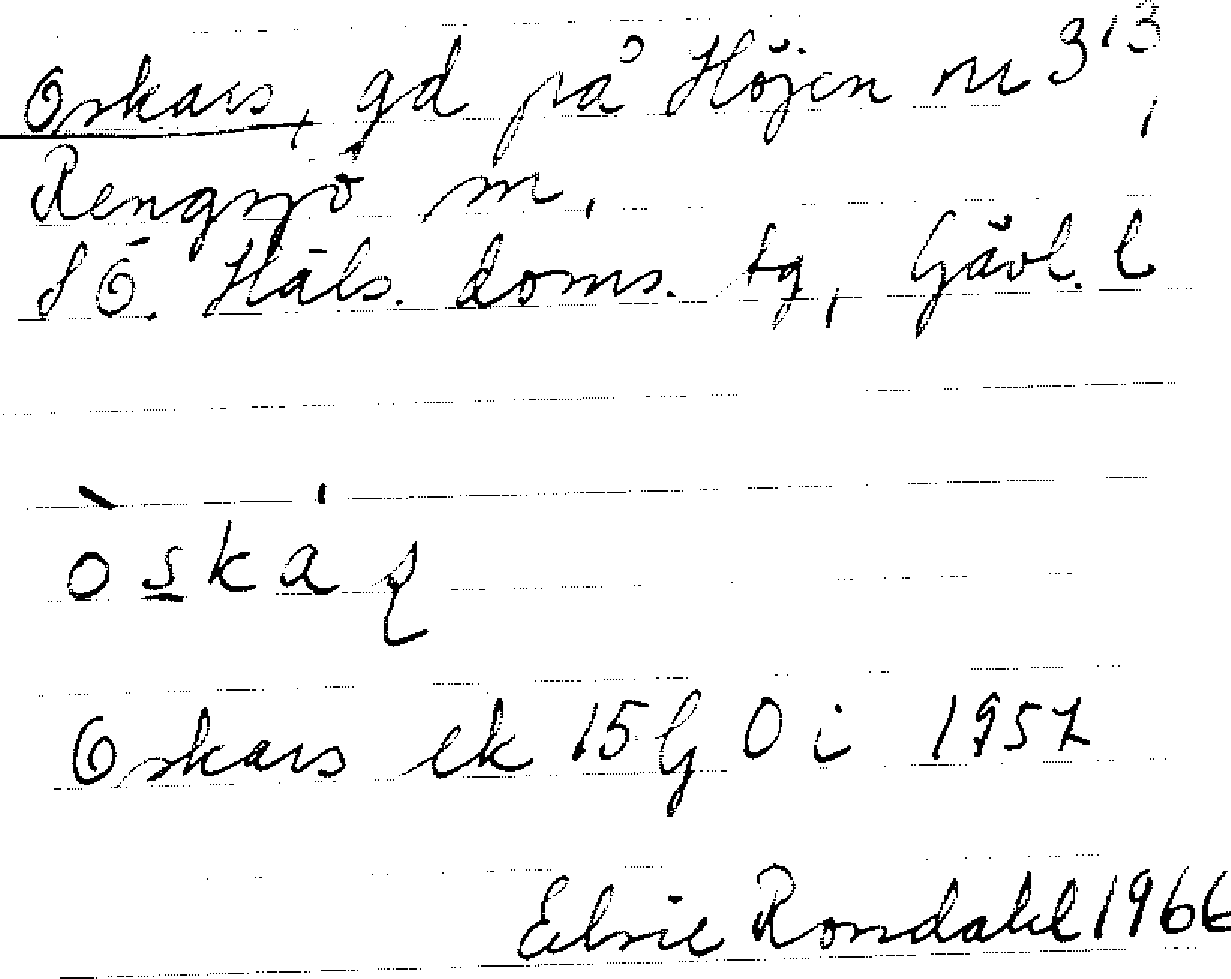 Oskars, gd på Höjen nr 3¹³,
Rengsjö sn,
S Ö. Häls. doms. tg, Gävl. l
òskáʂ
Oskars ek 15G 0i 1957
Elsie Rondahl 1966